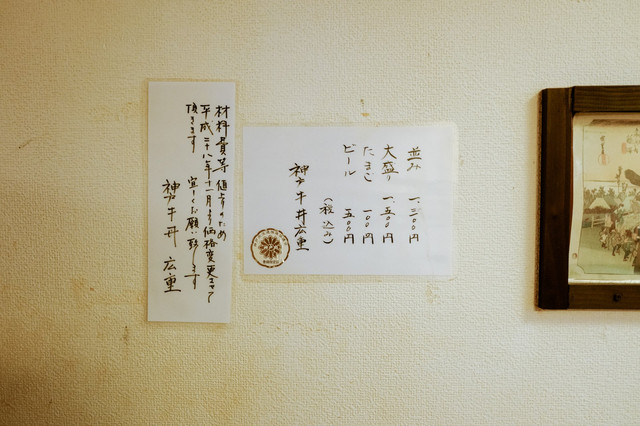 並み 一、三〇〇円
大盛り 一、五〇〇円
たまご 一〇〇円
ビール 五〇〇円
(税込み)
神戸牛丼広重
材料費等値上りのため
平成二十八年十一月より価格変更させて
頂きます 宜しくお願い致します
神戸牛丼 広重